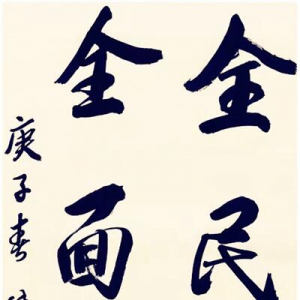 全民
全面
庚子春